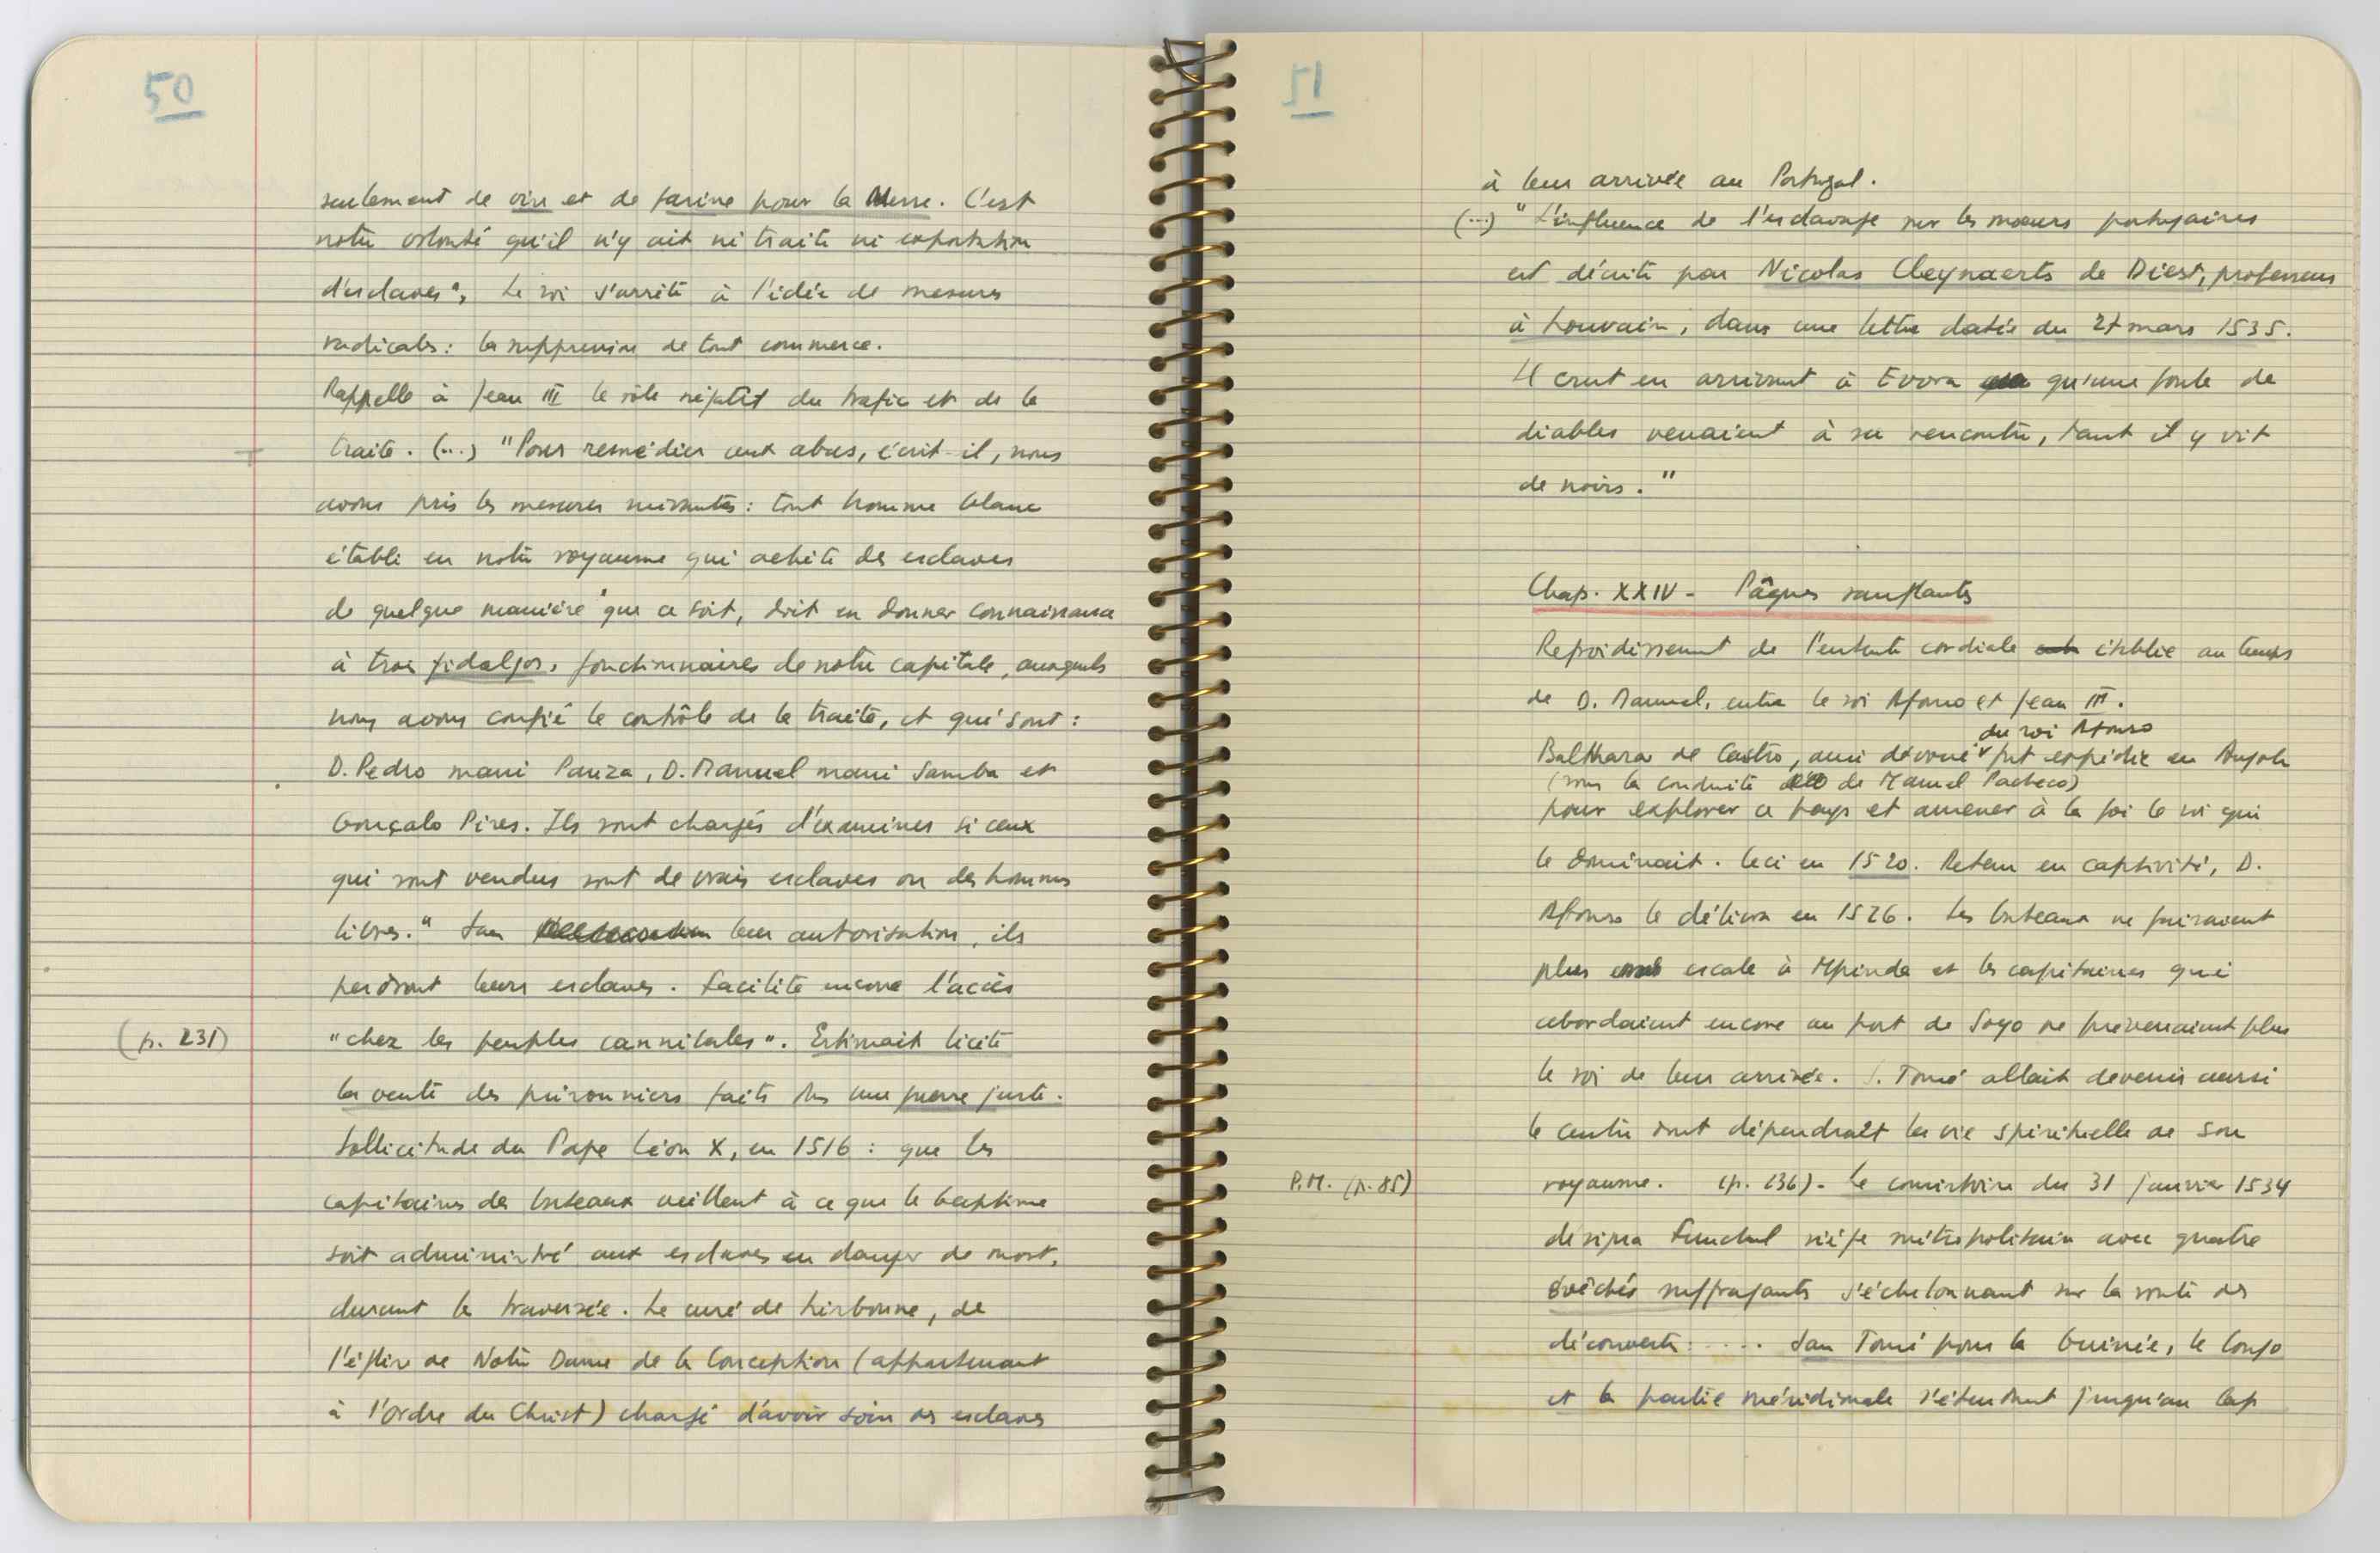 50
seulement de vin et de farine pour la Messe. C'est
notre volonté qu'il n'y ait ni traite ni exportation
d'esclaves". Le roi s'arrête à l'idée de mesures
radicales : la suppression de tout commerce.
Rappelle à Jean III le rôle négatif du trafic et de la
traite. (...) "Pour remédier aux abus, écrit-il, nous
avons pris les mesures suivantes : tout homme blanc
établi en notre royaume qui achète des esclaves
de quelque manière que ce soit, doit en donner connaissance
à trois fidalgos, fonctionnaires de notre capitale, auxquels
nous avons confié le contrôle de la traite, et qui sont :
D. Pedro mani Panza, D. Manuel mani Samba et
Gonçalo Pires. Ils sont chargés d'examiner si ceux
qui sont vendus sont de vrais esclaves ou des hommes
libres." Sans leur autorisation, ils
perdront leurs esclaves. Facilite encore l'accès
(p. 231) "chez les peuples cannibales". Estimait licite
la vente des prisonniers faits ds une guerre juste.
Sollicitude du Pape Léon X, en 1516 : que les
capitaines des bateaux veillent à ce que le baptême
soit administré aux esclaves en danger de mort,
durant la traversée. Le curé de Lisbonne, de
l'église de Notre Dame de la Conception (appartenant
à l'Ordre du Christ) chargé d'avoir soin des esclaves
51
à leur arrivée au Portugal.
(...) "L'influence de l'esclavage sur les mœurs portugaises
est décrite par Nicolas Cleynaerts de Diest, professeur
à Louvain, dans une lettre datée du 27 mars 1535.
Il crut en arrivant à Evora qu'une foule de
diables venaient à sa rencontre, tant il y vit
de noirs."
Chap. XXIV - Pâques sanglantes
Refroidissement de l'entente cordiale établie au temps
de D. Manuel, entre le roi Afonso et Jean III.
du roi Afonso
Balthazar de Castro, ami dévoué fut expédié en Angola
(sous la conduite de Manuel Pacheco)
pour explorer ce pays et amener à la foi le roi qui
le dominait. Ceci en 1520. Retenu en captivité, D.
Afonso le délivra en 1526. Les bateaux ne faisaient
plus escale à Mpinda et les capitaines qui
abordaient encore au port de Soyo ne prévenaient plus
le roi de leur arrivée. S. Tomé allait devenir aussi
le centre dont dépendrait la vie spirituelle de son
P.M. (p. 85) royaume. (p. 236) - Le consistoire du 31 janvier 1534
désigna Funchal siège métropolitain avec quatre
évêchés suffragants s'échelonnant sur la route des
découvertes : .... San Tomé pour la Guinée, le Congo
et la partie méridionale s'étendant jusqu'au Cap